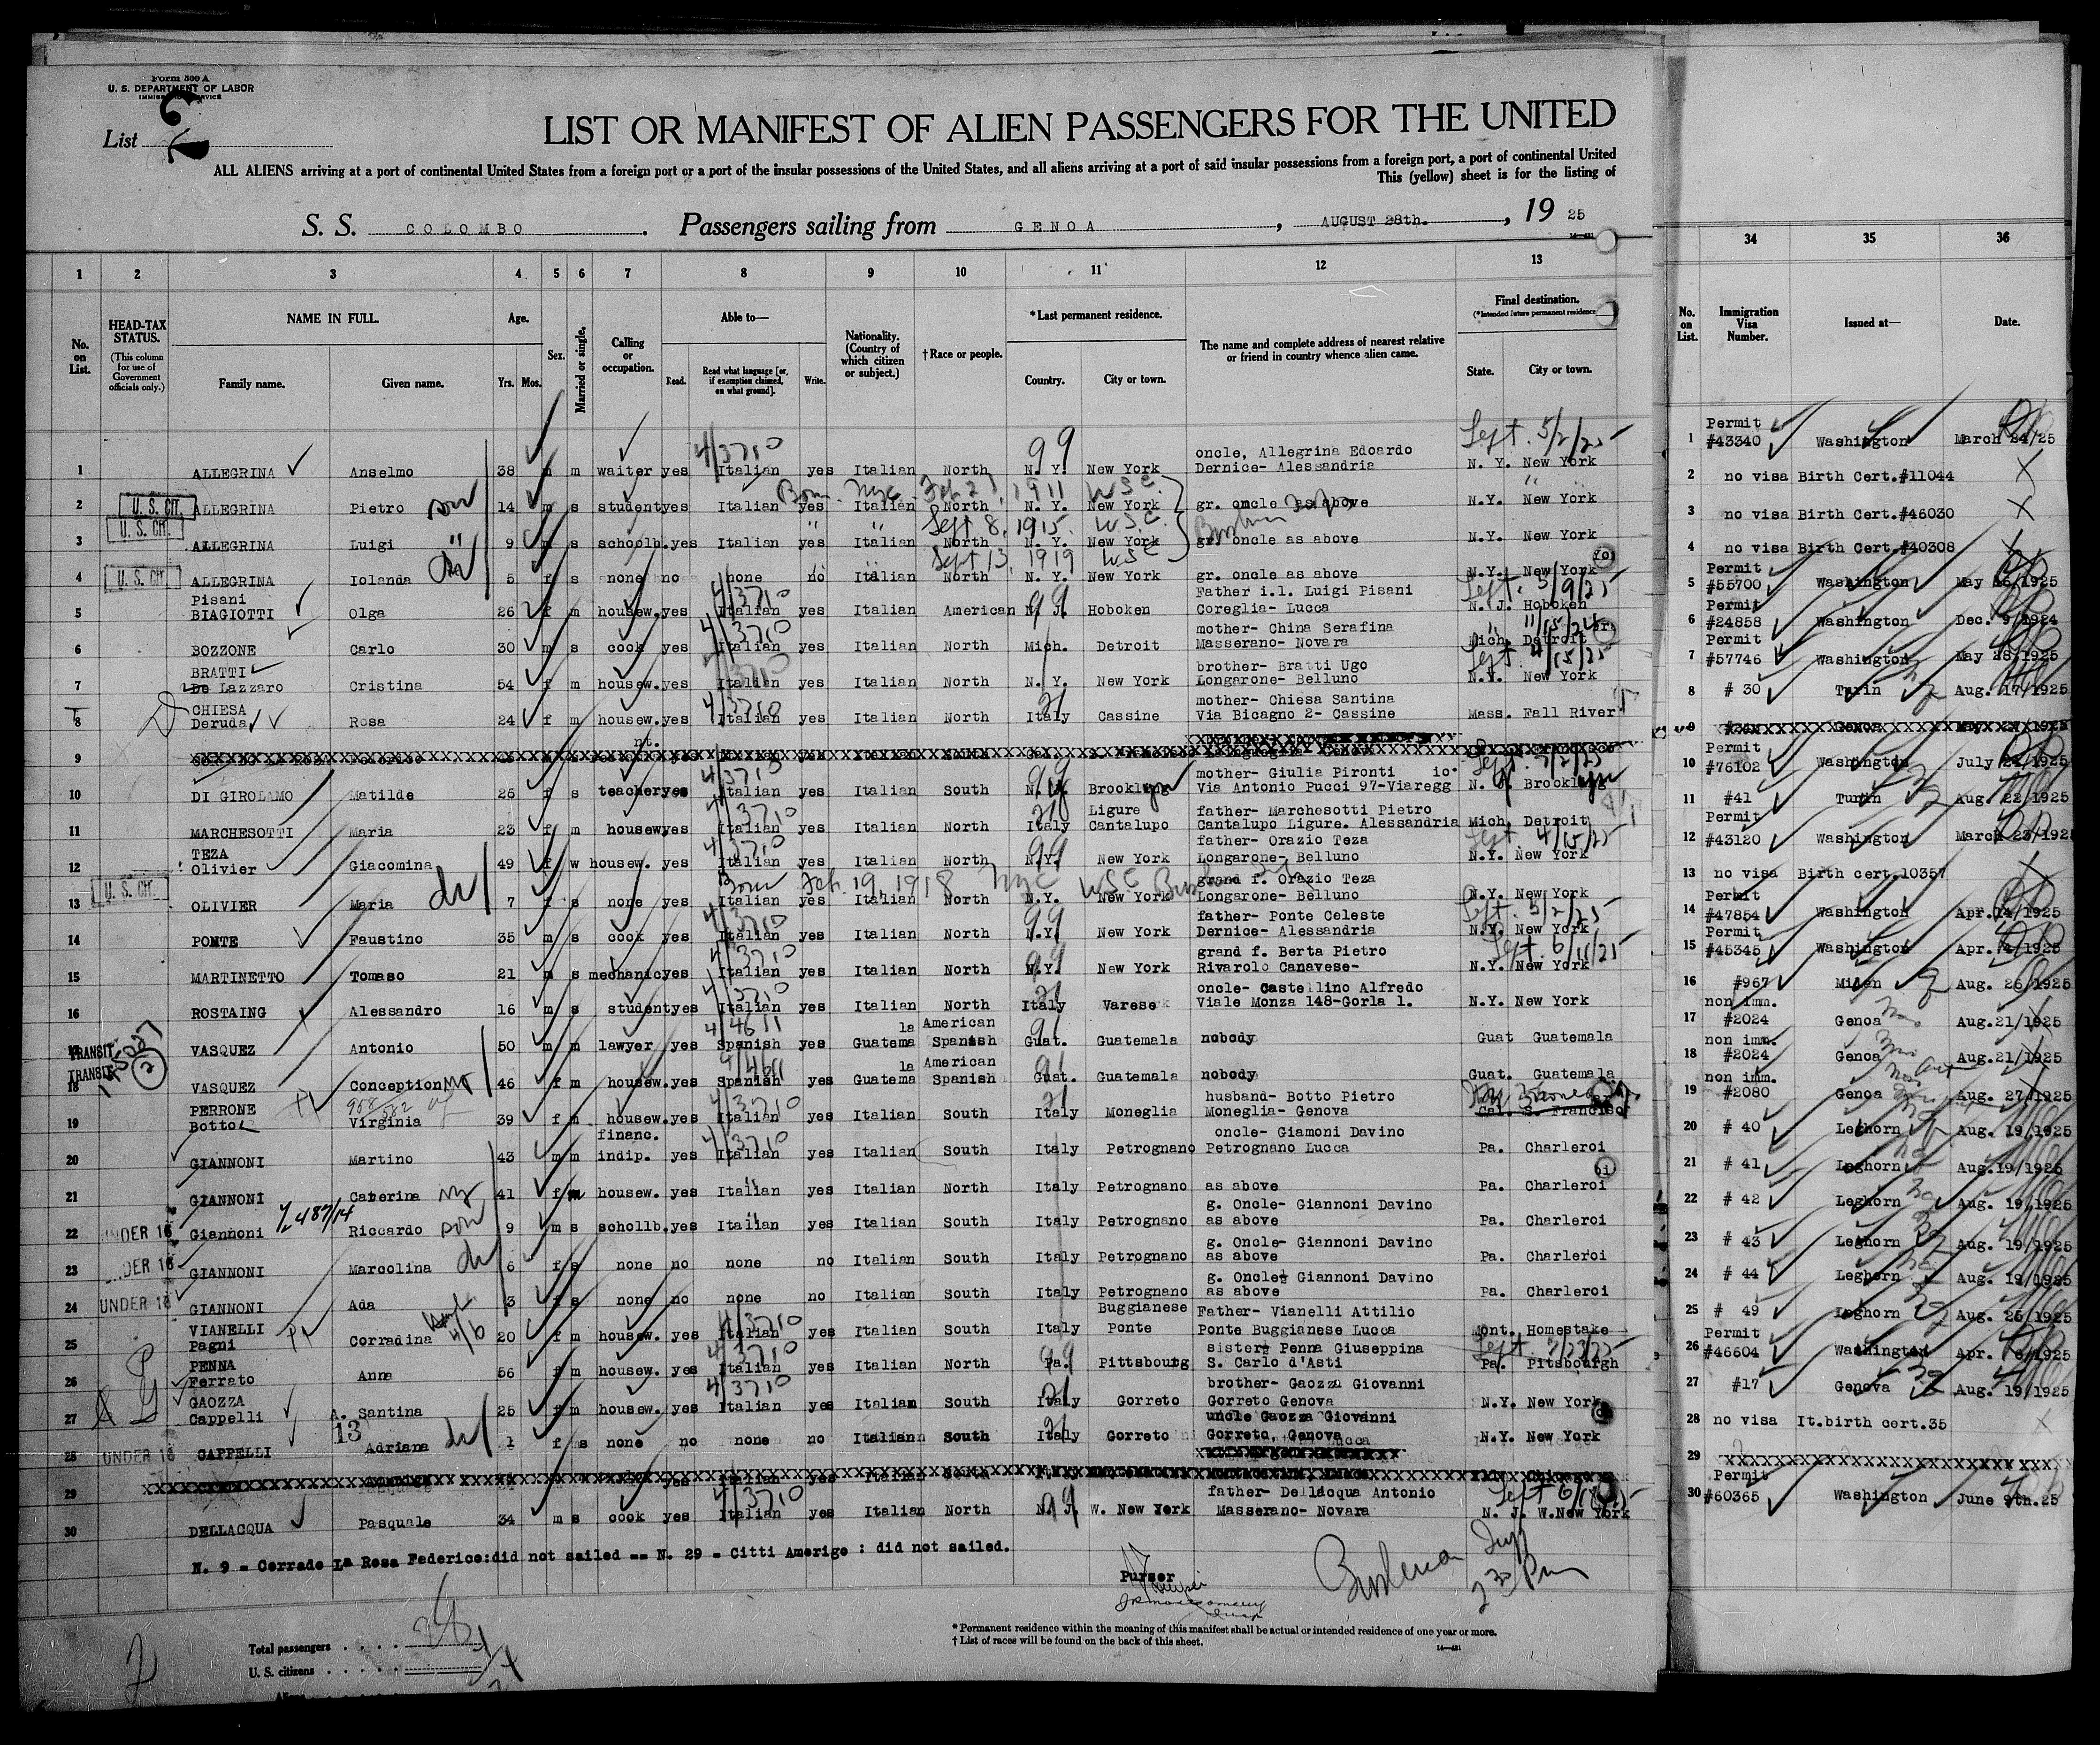 Form 500 A
U. S. DEPARTMENT OF LABOR
IMMIGRATION SERVICE
List
LIST OR MANIFEST OF ALIEN PASSENGERS FOR THE UNITED
ALL ALIENS arriving at a port of continental United States from a foreign port or a port of the insular possessions of the United States, and all aliens arriving at a port of said insular possessions from a foreign port, a port of continental United
This (yellow) sheet is for the listing of
S. S. COLOMBO. Passengers sailing from GENOA, AUGUST 28th., 19 25
1 2 3 4 5 6 7 8 9 10 11 12 13 34 35 36
No. on List.
HEAD-TAX STATUS. (This column for use of Government officials only.)
NAME IN FULL. Family name. Given name.
Age. Yrs. Mos.
Sex.
Married or single.
Calling or occupation.
Able to— Read. Read what language [or, if exemption claimed, on what ground]. Write.
Nationality. (Country of which citizen or subject.)
†Race or people.
*Last permanent residence. Country. City or town.
The name and complete address of nearest relative or friend in country whence alien came.
Final destination. (*Intended future permanent residence) State. City or town.
No. on List. Immigration Visa Number. Issued at— Date.
1 ALLEGRINA Anselmo 38 m m waiter yes 4/3710 Italian yes Italian North 99 N. Y. New York oncle, Allegrina Edoardo Dernice- Alessandria Sept. 5/2/25 N. Y. New York
1 Permit #43340 Washington March 24/25
2 U. S. CIT. ALLEGRINA Pietro son 14 m s student yes Italian yes Italian North N. Y. New York gr. oncle as above N.Y. New York
Born NYC Feb 2 1911 WSC
2 no visa Birth Cert.#11044
3 U. S. CIT. ALLEGRINA Luigi " 9 m s schoolb. yes Italian yes Italian North N. Y. New York gr. oncle as above N.Y. New York
" " Sept 8, 1915 WSC
3 no visa Birth Cert.#46030
4 U. S. CIT. ALLEGRINA Iolanda 5 f s none no none no Italian North N. Y. New York gr. oncle as above N.Y. New York
Sept 13, 1919 WSC
4 no visa Birth Cert.#40308
5 Pisani BIAGIOTTI Olga 26 f m housew. yes 4/3710 Italian yes Italian American 99 N. J. Hoboken Father i.l. Luigi Pisani Coreglia- Lucca Sept. 5/9/25 N. J. Hoboken
5 Permit #55700 Washington May 16/1925
6 BOZZONE Carlo 30 m s cook yes 4/3710 Italian yes Italian North Mich. Detroit mother- China Serafina Masserano- Novara " 11/15/24 Mich. Detroit
6 Permit #24858 Washington Dec. 9/1924
7 BRATTI De Lazzaro Cristina 54 f m housew. yes 3710 Italian yes Italian North N. Y. New York brother- Bratti Ugo Longarone- Belluno Sept. 4/15/25 N.Y. New York
7 Permit #57746 Washington May 28/1925
8 CHIESA Deruda Rosa 24 f m housew. yes 4/3710 Italian yes Italian North 21 Italy Cassine mother- Chiesa Santina Via Bicagno 2- Cassine Mass. Fall River
8 # 30 Turin Aug. 17/1925
9
9
10 DI GIROLAMO Matilde 26 f s teacher yes 4/3710 Italian yes Italian South 99 N. Y. Brooklyn mother- Giulia Pironti io- Via Antonio Pucci 97-Viaregg N. Y. Brooklyn
10 Permit #76102 Washington July 21/1925
11 MARCHESOTTI Maria 23 f m housew yes 4/3710 Italian yes Italian North 21 Italy Ligure Cantalupo father- Marchesotti Pietro Cantalupo Ligure. Alessandria Mich. Detroit
11 #41 Turin Aug. 22/1925
12 TEZA Olivier Giacomina 49 f w housew. yes 4/3710 Italian yes Italian North 99 N.Y. New York father- Orazio Teza Longarone- Belluno Sept 4/15/25 N.Y. New York
12 Permit #43120 Washington March 23/1925
13 U. S. CIT. OLIVIER Maria 7 f s none yes Italian yes Italian North N.Y. New York grand f. Orazio Teza Longarone- Belluno N.Y. New York
Born Feb. 19 1918 NYC WSC
13 no visa Birth cert.10357
14 PONTE Faustino 35 m s cook yes 4/3710 Italian yes Italian North 99 N.Y. New York father- Ponte Celeste Dernice- Alessandria Sept. 5/2/25 N.Y. New York
14 Permit #47854 Washington Apr.14/1925
15 MARTINETTO Tomaso 21 m s mechanic yes 4/3710 Italian yes Italian North 99 N.Y. New York grand f. Berta Pietro Rivarolo Canavese- Sept. 6/11/25 N.Y. New York
15 Permit #45345 Washington Apr. 4/1925
16 ROSTAING Alessandro 16 m s student yes 4/3710 Italian yes Italian North 21 Italy Varese oncle- Castellino Alfredo Viale Monza 148-Gorla 1. N.Y. New York
16 #967 Milan Aug. 26/1925
17 TRANSIT VASQUEZ Antonio 50 m m lawyer yes 4/4611 Spanish yes la Guatema American Spanish Guat. Guatemala nobody Guat Guatemala
17 non imm. #2024 Genoa Aug.21/1925
18 TRANSIT VASQUEZ Conception 46 f m housew. yes Spanish yes la Guatema American Spanish Guat. Guatemala nobody Guat. Guatemala
18 non imm. #2024 Genoa Aug.21/1925
19 PERRONE Botto Virginia 39 f m housew. yes 4/3710 Italian yes Italian South 21 Italy Moneglia husband- Botto Pietro Moneglia- Genova Cal. S. Francisco
19 non imm. #2080 Genoa Aug. 27/1925
20 GIANNONI Martino 43 m m financ. indip. yes 4/3710 Italian yes Italian South Italy Petrognano oncle- Giamoni Davino Petrognano Lucca Pa. Charleroi
20 # 40 Leghorn Aug. 19/1925
21 GIANNONI Caterina 41 f m housew. yes Italian yes Italian North Italy Petrognano as above Pa. Charleroi
21 # 41 Leghorn Aug.19/1925
22 UNDER 16 Giannoni Riccardo son 9 m s schollb. yes Italian yes Italian South Italy Petrognano g. Oncle- Giannoni Davino as above Pa. Charleroi
22 # 42 Leghorn Aug. 19/1925
23 UNDER 16 GIANNONI Marcolina 6 f s none no none no Italian South Italy Petrognano g. Oncle- Giannoni Davino as above Pa. Charleroi
23 # 43 Leghorn Aug. 19/1925
24 UNDER 16 GIANNONI Ada 3 f s none no none no Italian South Italy Petrognano g. Oncle- Giannoni Davino as above Pa. Charleroi
24 # 44 Leghorn Aug. 19/1925
25 VIANELLI Pagni Corradina 20 f m housew. yes 4/3710 Italian yes Italian South Italy Buggianese Ponte Father- Vianelli Attilio Ponte Buggianese Lucca Mont. Homestake
25 # 49 Leghorn Aug. 25/1925
26 PENNA Ferrato Anna 56 f m housew. yes 4/3710 Italian yes Italian North 99 Pa. Pittsbourg sister- Penna Giuseppina S. Carlo d'Asti Pa. Pitsbourgh
26 Permit #46604 Washington Apr. 6/1925
27 GAOZZA Cappelli A. Santina 25 f m housew. yes 4/3710 Italian yes Italian South 21 Italy Gorreto brother- Gaozza Giovanni Gorreto Genova N.Y. New York
27 #17 Genova Aug. 19/1925
28 UNDER 16 CAPPELLI 13 Adriana 1 f s none no none no Italian South 21 Italy Gorreto uncle Gaozza Giovanni Gorreto, Genova N.Y. New York
28 no visa It.birth cert.35
29
29
30 DELLACQUA Pasquale 34 m s cook yes 4/3710 Italian yes Italian North 99 N. J. W. New York father- Dellacqua Antonio Masserano- Novara N. J. W.New York
30 Permit #60365 Washington June 9th.25
N. 9 - Cerrade La Rosa Federico:did not sailed -- N. 29 - Citti Amerigo : did not sailed.
Purser
Total passengers
U. S. citizens
Aliens
*Permanent residence within the meaning of this manifest shall be actual or intended residence of one year or more.
†List of races will be found on the back of this sheet.